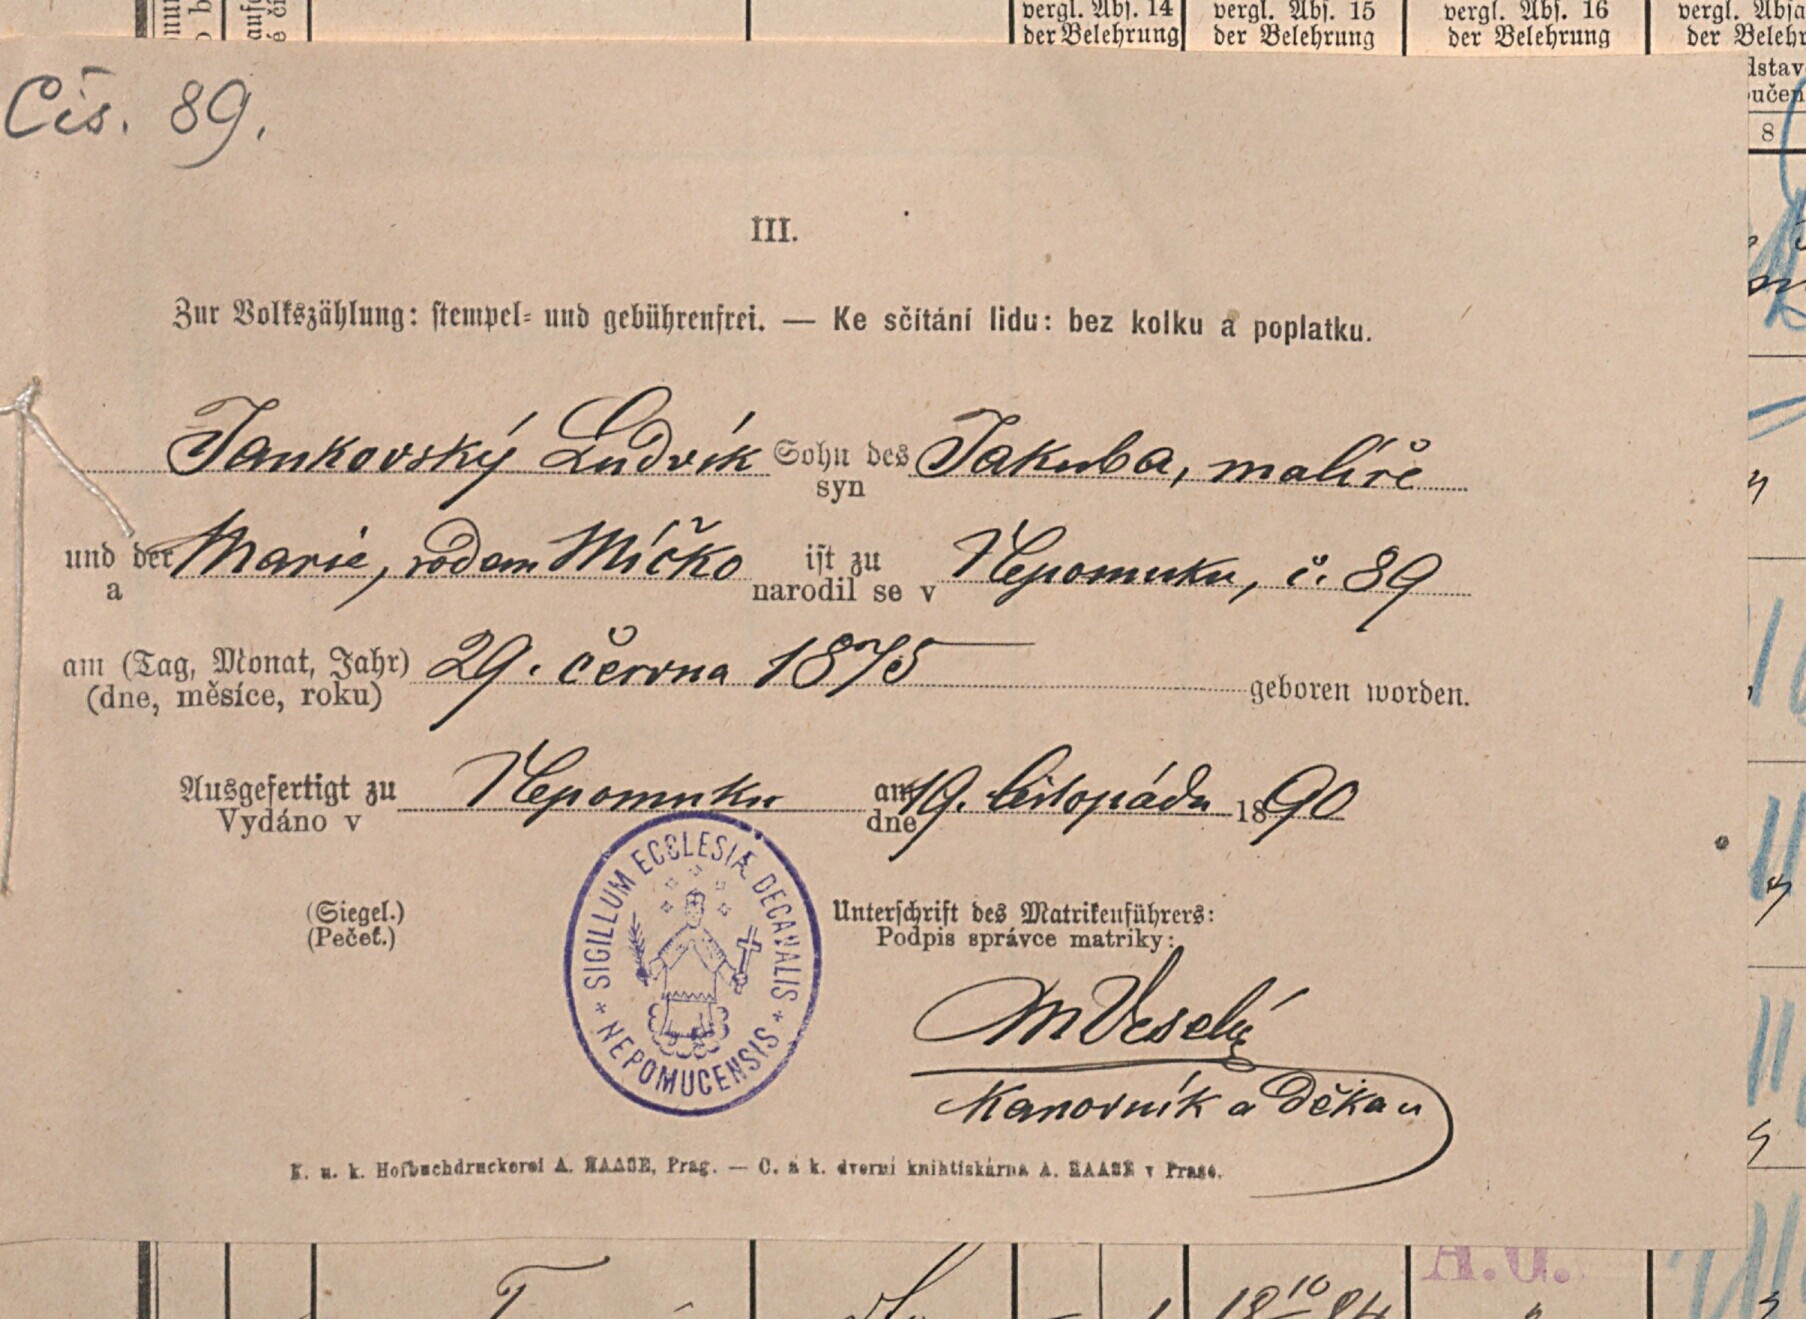 vergl. Abs. 14 vergl. Abs. 15 vergl. Abs. 16 vergl.
der Belehrung der Belehrung der Belehrung der
8
Čís. 89.
III.
Zur Volkszählung: stempel- und gebührenfrei. — Ke sčítání lidu: bez kolku a poplatku.
Jankovský Ludvík Sohn des Jakuba, malíře
syn
und der Marie, rodem Míčko ist zu Nepomuku, č. 89
a narodil se v
am (Tag, Monat, Jahr) 29. června 1875 geboren worden.
(dne, měsíce, roku)
Ausgefertigt zu Nepomuku am 19. listopádu 1890
Vydáno v dne
SIGILLUM ECCLESIÆ DECANALIS
* NEPOMUCENSIS *
(Siegel.) Unterschrift des Matrikenführers:
(Pečeť.) Podpis správce matriky:
M Veselý
Kanovník a Děkan
K. u. k. Hofbuchdruckerei A. HAASE, Prag. — C. a k. dvorní knihtiskárna A. HAASE v Praze.